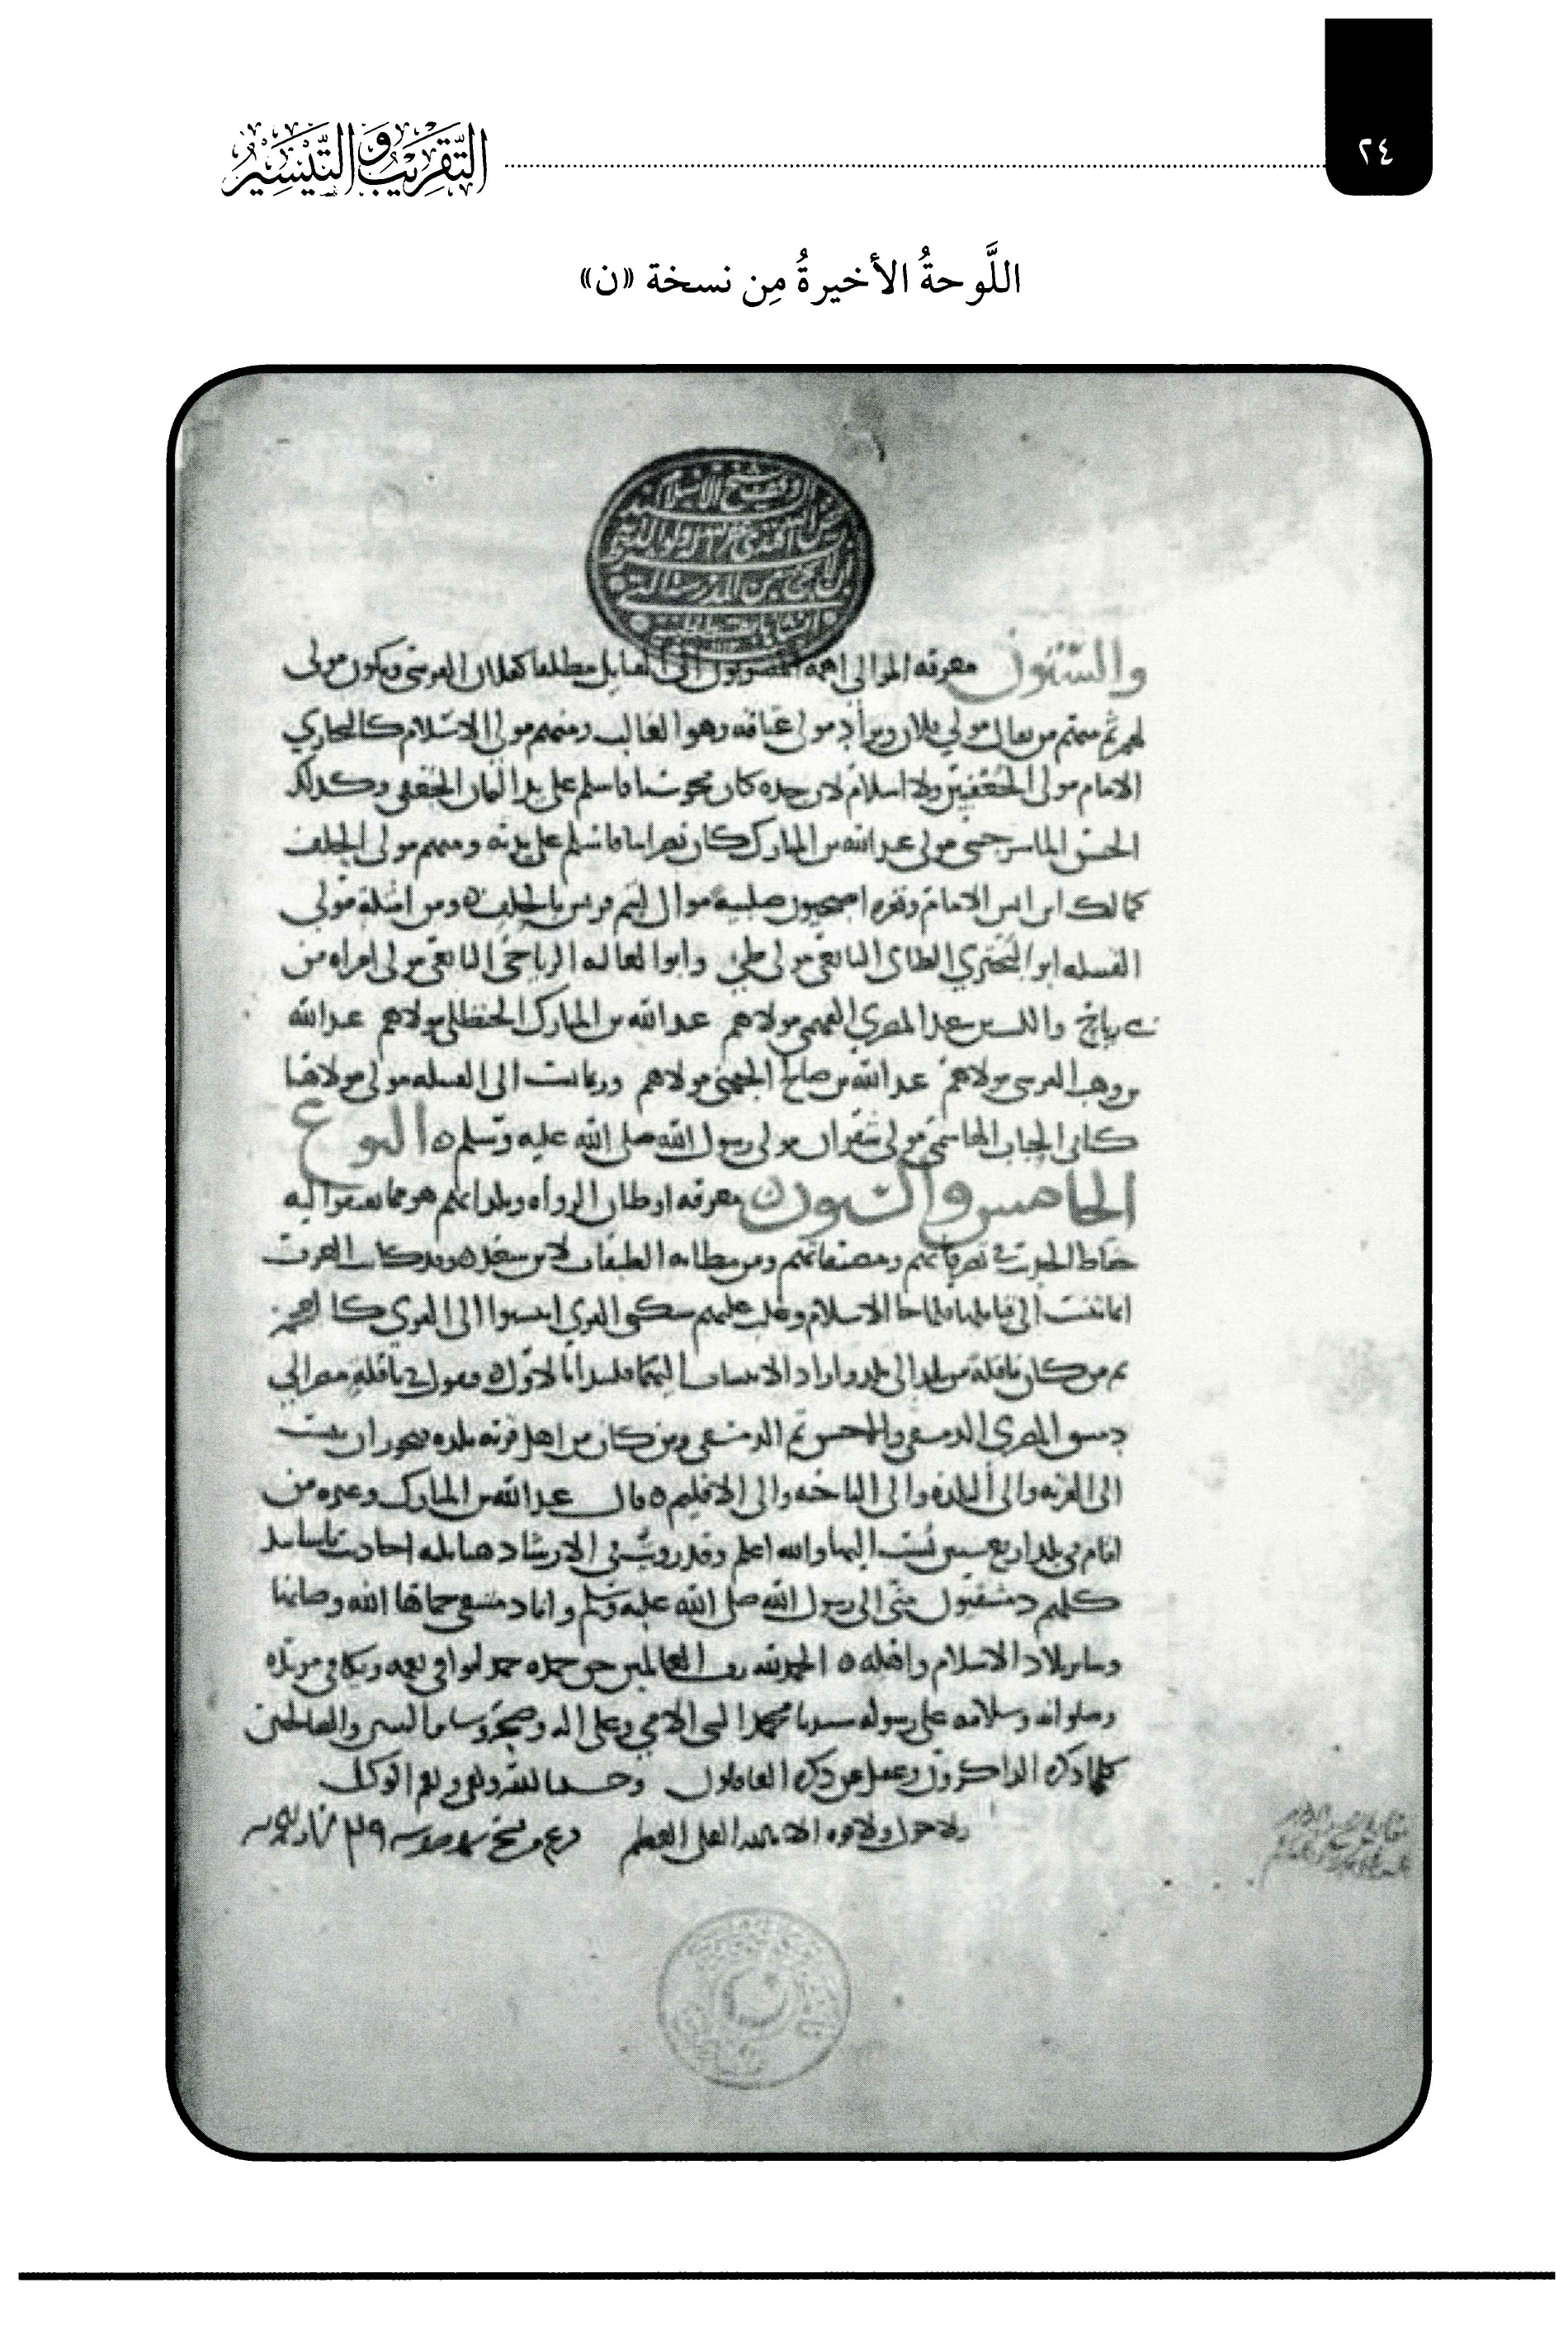 ٢٤
التَّقْرِيبُ وَالتَّيْسِيرُ
اللَّوحةُ الأخيرةُ مِن نسخة «ن»
والستون معرفه الموالي اهمه المنسوبون الى القبايل مطلقا كفلان القرشي ويكون مولى
لهم ثم منهم من يقال مولى فلان ويراد مولى عتاقه وهو الغالب ومنهم مولى الاسلام كالبخاري
الامام مولى الجعفيين ولا اسلام لان جده كان مجوسيا فاسلم على يد اليمان الجعفي وكذلك
الحسن الماسرجسي مولى عبد الله بن المبارك كان نصرانيا فاسلم على يديه ومنهم مولى الحلف
كمالك ابن انس الامام ونفره اصبحيون صليبة موال لتيم قريش بالحلف ومن امثلة مولى
القبيله ابو البختري الطائى التابعي مولى طيئ وابو العاليه الرياحي التابعي مولى امراه من
بني رياح والليث بن سعد المصري الفهمي مولاهم عبد الله بن المبارك الحنظلي مولاهم عبد الله
بن وهب القرشي مولاهم عبد الله بن صالح الجهني مولاهم وربما نسب الى القبيله مولى مولاها
كابى الحباب الهاشمي مولى شقران مولى رسول الله صلى الله عليه وسلم النوع
الخامس والستون معرفه اوطان الرواه وبلدانهم هو مما يفتقر اليه
حفاظ الحديث في تصرفاتهم ومصنفاتهم ومن مظانه الطبقات لابن سعد وقد كانت العرب
انما تنسب الى قبايلها فلما جا الاسلام وغلب عليهم سكنى القرى انتسبوا الى القرى كالعجم
ثم من كان ناقلة من بلد الى بلد واراد الانتساب اليهما فليبدا بالاول فيقول في ناقلة مصر الى
دمشق المصري الدمشقي والاحسن ثم الدمشقي ومن كان من اهل قرية بلده يجوز ان ينسب
الى القريه والى البلده والى الناحيه والى الاقليم قال عبد الله بن المبارك وغيره من
اقام في بلد اربع سنين نسب اليها والله اعلم وقد رويت في الارشاد هنا ثلثه احاديث باسانيد
كلهم دمشقيون مني الى رسول الله صلى الله عليه وسلم وانا دمشقي حماها الله وصانها
وساير بلاد الاسلام واهله الحمد لله رب العالمين حق حمده حمدا يوافي نعمه ويكافي مزيده
وصلواته وسلامه على رسوله سيدنا محمد النبي الامي وعلى اله وصحبه وساير النبيين والصالحين
كلما ذكره الذاكرون وغفل عن ذكره الغافلون وحسبنا الله ونعم الوكيل
ولا حول ولا قوه الا بالله العلي العظيم